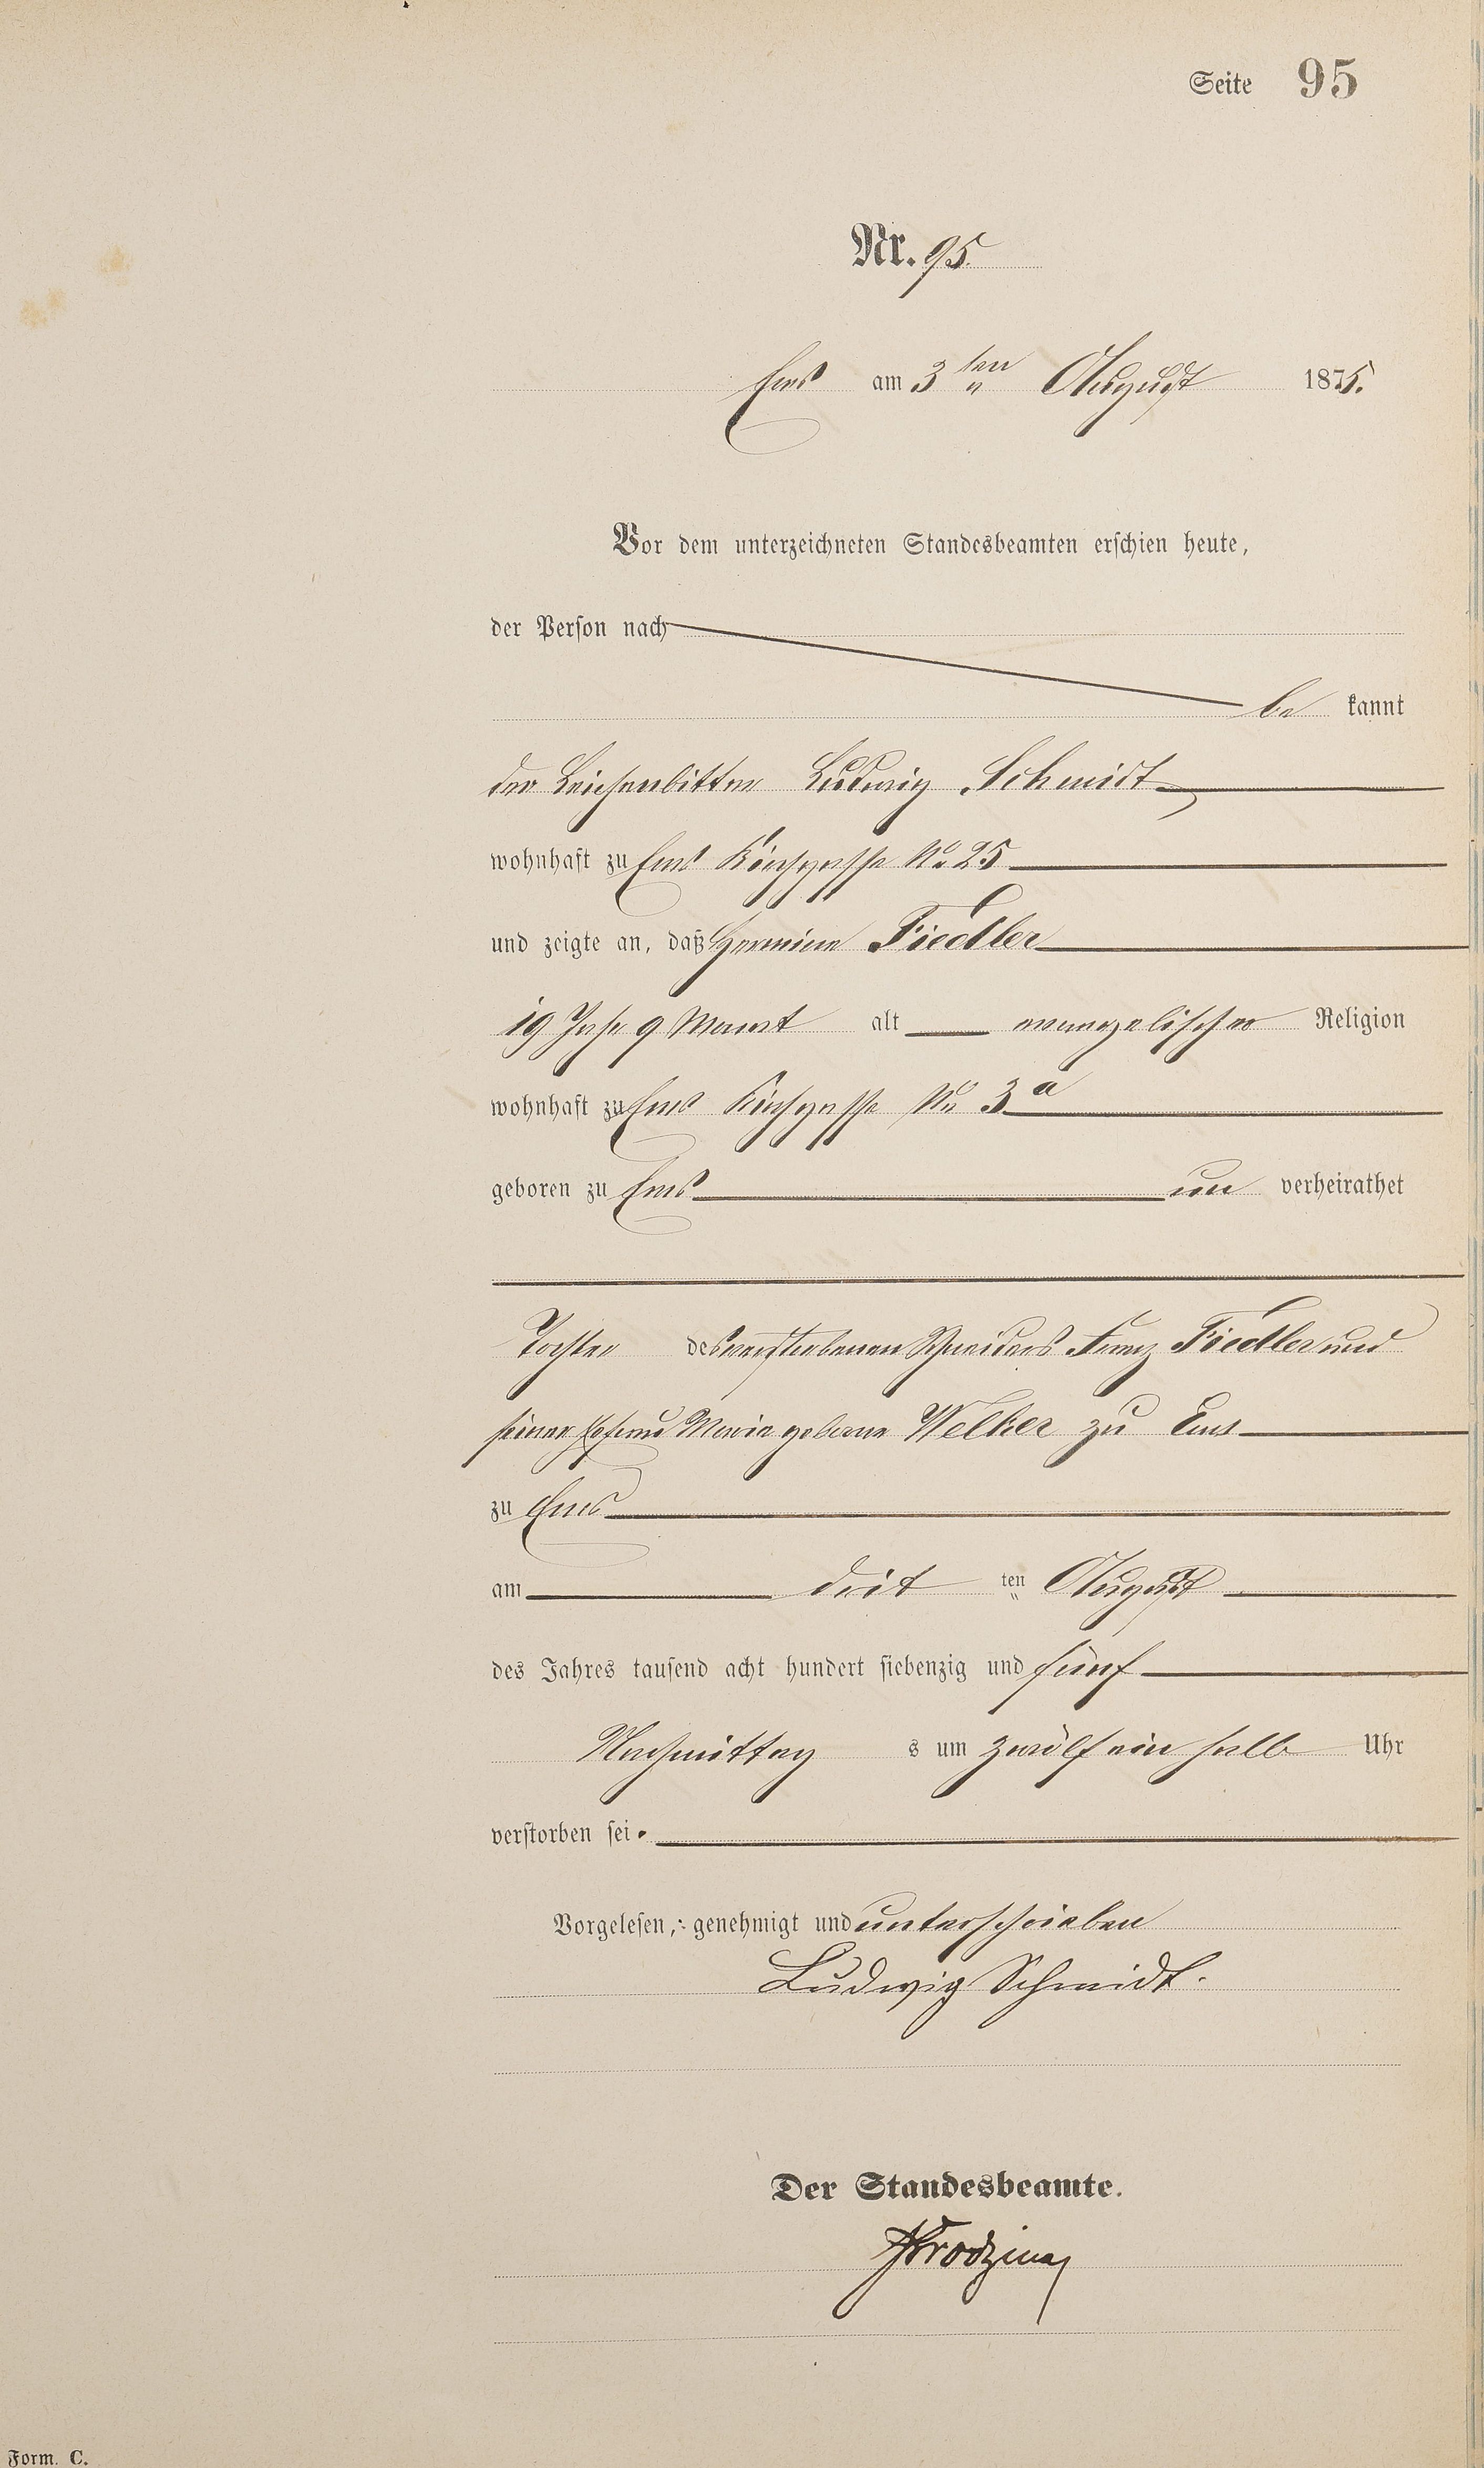 Seite 95
Nr. 95.
Ems am 3ten August 1875.
Vor dem unterzeichneten Standesbeamten erschien heute,
der Person nach
be kannt
der Leichenbitter Ludwig Schmidt
wohnhaft zu Ems Kirchgasse No 25
und zeigte an, daß Hermine Fiedler
19 Jahr 9 Monat alt evangelischer Religion
wohnhaft zu Ems Kirchgasse No 3a
geboren zu Ems un verheirathet
Tochter des verstorbenen Schneiders Franz Fiedler und
seiner Ehefrau Maria geborne Welker zu Ems
zu Ems
am drit ten August
des Jahres tausend acht hundert siebenzig und fünf
Nachmittag s um zwölf ein halb Uhr
verstorben sei.
Vorgelesen, genehmigt und unterschrieben
Ludwig Schmidt.
Der Standesbeamte.
Form. C.